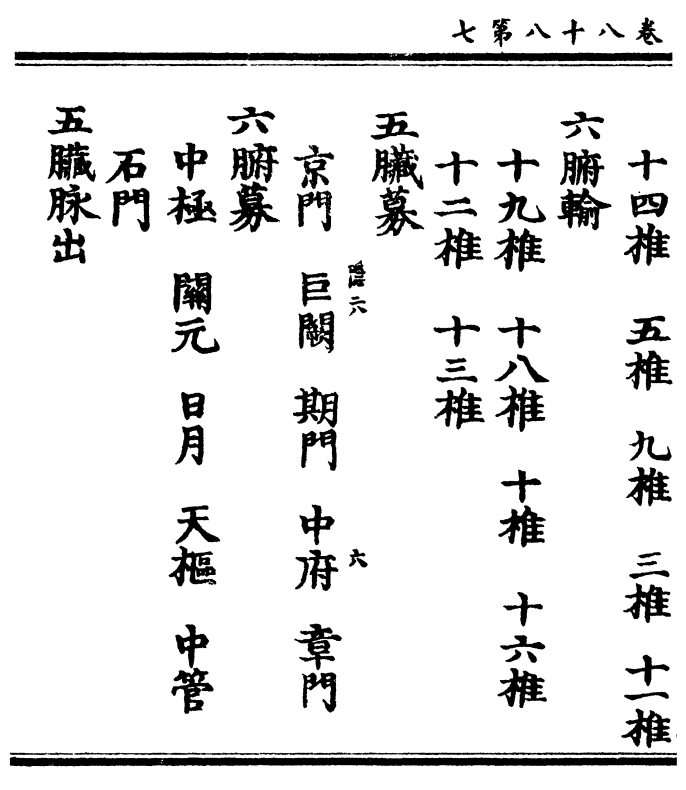 卷八十八第七
十四椎 五椎 九椎 三椎 十一椎
六腑輸
十九椎 十八椎 十椎 十六椎
十二椎 十三椎
五臟募
京門 巨闕 期門 中府 章門
二六 六
六腑募
中極 關元 日月 天樞 中管
石門
五臟脉出